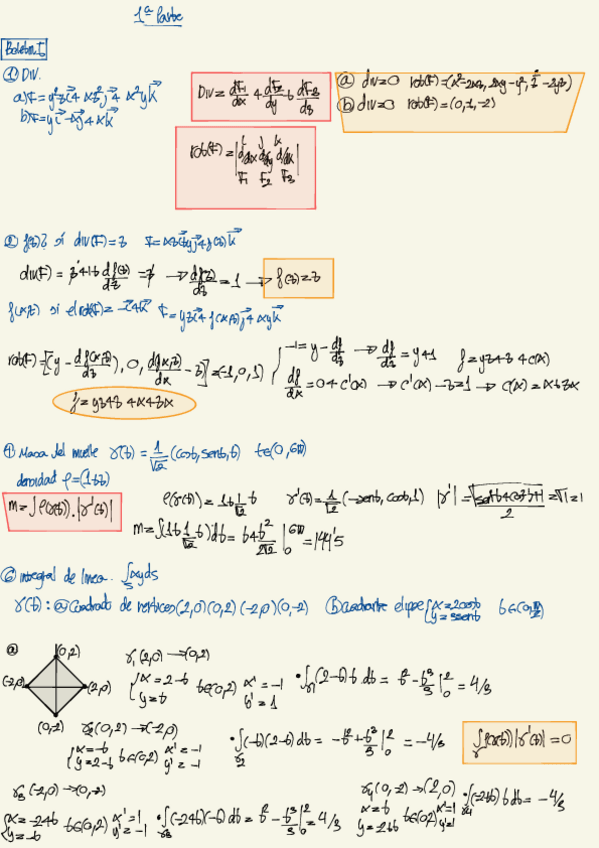 1ª Parte
Boletín I
① DIV.
a) F = y²z i + xz² j + x²y k
b) F = y i - x j + x k
Div = dF1/dx + dF2/dy + dF3/dz
rot(F) = | i j k d/dx d/dy d/dz F1 F2 F3 |
ⓐ div=0 rot(F)=
ⓑ div=0 rot(F)=(0,-1,-2)
② f(z)? si div(F)=z
div(F) = z + df(z)/dz = → df(z)/dz = 1 → f(z)=z
f(x,z) si el rot(F)= -i+k F= yz i + f(x,z) j + xy k
rot(F)= (y - df(x,z)/dz), 0, df(x,z)/dx - z = (-1,0,1)
-1 = y - df/dz → df/dz = y+1 f = yz+z+c(x)
df/dx = 0 + c'(x) → c'(x) - z = 1 → c(x) = x+zx
f = yz+z+x+zx
④ Masa del muelle r(t) = 1/√2 (cost, sent, t) t∈(0, 6π)
densidad ρ=(1+z)
m = ∫ρ(r(t))·|r'(t)|
ρ(r(t)) = 1+1/√2 t r'(t) = 1/√2 (-sent, cost, 1) |r'| = √(sen²t+cos²t+1)/2 = √1 = 1
m = ∫(1+1/√2 t)dt = t + t²/2√2 |₀^6π = 144'5
⑥ integral de linea. ∫xyds
r(t): ⓐ Cuadrado de vertices (2,0)(0,2)(-2,0)(0,-2) ⓑ Cuadrante elipse { x=2cost y=3sent t∈(0,π/2)
ⓐ
(0,2)
(-2,0)
(2,0)
(0,-2)
r₁ (2,0) → (0,2)
{ x = 2-t y = t t∈(0,2) x' = -1 y' = 1
• ∫r₁ (2-t)t dt = t² - t³/3 |₀² = 4/3
r₂ (0,2) → (-2,0)
{ x = -t y = 2-t t∈(0,2) x' = -1 y' = -1
• ∫r₂ (-t)(2-t)dt = -t² + t³/3 |₀² = -4/3
∫r f(r(t))|r'(t)| = 0
r₃ (-2,0) → (0,-2)
{ x = -2+t y = -t t∈(0,2) x' = 1 y' = -1
• ∫r₃ (-2+t)(-t)dt = t² - t³/3 |₀² = 4/3
r₄ (0,-2) → (2,0)
x = t y = -2+t t∈(0,2) x' = 1 y' = 1
• ∫r₄ (-2+t)t dt = -4/3